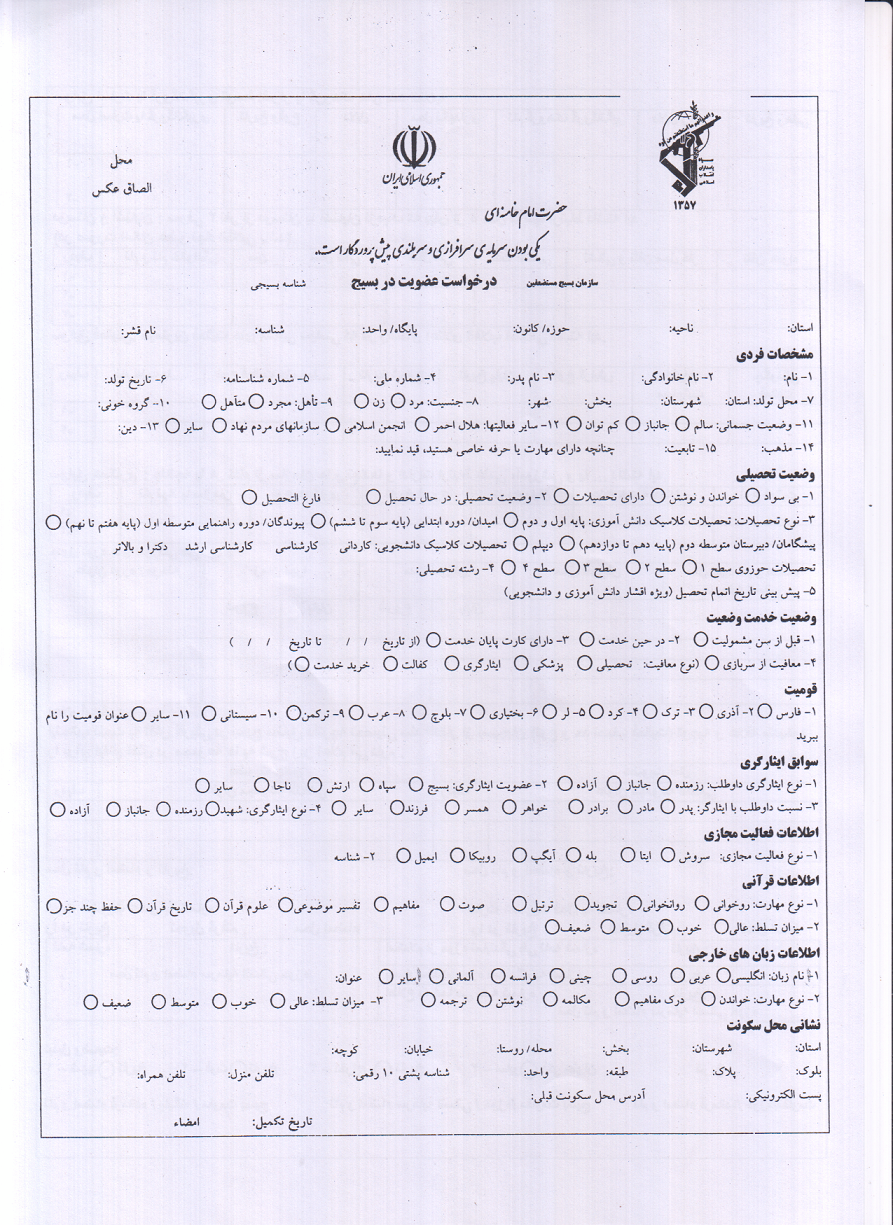 محل
الصاق عکس
جمهوری اسلامی ایران
سپاه
پاسداران
انقلاب
اسلامی
۱۳۵۷
حضرت امام خامنه ای
یکی بودن سرمایه ی سرافرازی و سربلندی پیش پروردگار است..
سازمان بسیج مستضعفین درخواست عضویت در بسیج شناسه بسیجی
استان: ناحیه: حوزه/ کانون: پایگاه/ واحد: شناسه: نام قشر:
مشخصات فردی
۱- نام: ۲- نام خانوادگی: ۳- نام پدر: ۴- شماره ملی: ۵- شماره شناسنامه: ۶- تاریخ تولد:
۷- محل تولد: استان: شهرستان: بخش: شهر: ۸- جنسیت: مرد ○ زن ○ ۹- تأهل: مجرد ○ متأهل ○ ۱۰- گروه خونی:
۱۱- وضعیت جسمانی: سالم ○ جانباز ○ کم توان ○ ۱۲- سایر فعالیتها: هلال احمر ○ انجمن اسلامی ○ سازمانهای مردم نهاد ○ سایر ○ ۱۳- دین:
۱۴- مذهب: ۱۵- تابعیت: چنانچه دارای مهارت یا حرفه خاصی هستید، قید نمایید:
وضعیت تحصیلی
۱- بی سواد ○ خواندن و نوشتن ○ دارای تحصیلات ○ ۲- وضعیت تحصیلی: در حال تحصیل ○ فارغ التحصیل ○
۳- نوع تحصیلات: تحصیلات کلاسیک دانش آموزی: پایه اول و دوم ○ امیدان/ دوره ابتدایی (پایه سوم تا ششم) ○ پیوندگان/ دوره راهنمایی متوسطه اول (پایه هفتم تا نهم) ○
پیشگامان/ دبیرستان متوسطه دوم (پایه دهم تا دوازدهم) ○ دیپلم ○ تحصیلات کلاسیک دانشجویی: کاردانی کارشناسی کارشناسی ارشد دکترا و بالاتر
تحصیلات حوزوی سطح ۱ ○ سطح ۲ ○ سطح ۳ ○ سطح ۴ ○ ۴- رشته تحصیلی:
۵- پیش بینی تاریخ اتمام تحصیل (ویژه اقشار دانش آموزی و دانشجویی)
وضعیت خدمت وضعیت
۱- قبل از سن مشمولیت ○ ۲- در حین خدمت ○ ۳- دارای کارت پایان خدمت ○ (از تاریخ / / تا تاریخ / / )
۴- معافیت از سربازی ○ (نوع معافیت: تحصیلی ○ پزشکی ○ ایثارگری ○ کفالت ○ خرید خدمت ○)
قومیت
۱- فارس ○ ۲- آذری ○ ۳- ترک ○ ۴- کرد ○ ۵- لر ○ ۶- بختیاری ○ ۷- بلوچ ○ ۸- عرب ○ ۹- ترکمن ○ ۱۰- سیستانی ○ ۱۱- سایر ○ عنوان قومیت را نام
ببرید
سوابق ایثارگری
۱- نوع ایثارگری داوطلب: رزمنده ○ جانباز ○ آزاده ○ ۲- عضویت ایثارگری: بسیج ○ سپاه ○ ارتش ○ ناجا ○ سایر ○
۳- نسبت داوطلب با ایثارگر: پدر ○ مادر ○ برادر ○ خواهر ○ همسر ○ فرزند ○ سایر ○ ۴- نوع ایثارگری: شهید ○ رزمنده ○ جانباز ○ آزاده ○
اطلاعات فعالیت مجازی
۱- نوع فعالیت مجازی: سروش ○ ایتا ○ بله ○ آیگپ ○ روبیکا ○ ایمیل ○ ۲- شناسه
اطلاعات قرآنی
۱- نوع مهارت: روخوانی ○ روانخوانی ○ تجوید ○ ترتیل ○ صوت ○ مفاهیم ○ تفسیر موضوعی ○ علوم قرآن ○ تاریخ قرآن ○ حفظ چند جز ○
۲- میزان تسلط: عالی ○ خوب ○ متوسط ○ ضعیف ○
اطلاعات زبان های خارجی
۱- نام زبان: انگلیسی ○ عربی ○ روسی ○ چینی ○ فرانسه ○ آلمانی ○ سایر ○ عنوان:
۲- نوع مهارت: خواندن ○ درک مفاهیم ○ مکالمه ○ نوشتن ○ ترجمه ○ ۳- میزان تسلط: عالی ○ خوب ○ متوسط ○ ضعیف ○
نشانی محل سکونت
استان: شهرستان: بخش: محله/ روستا: خیابان: کوچه:
بلوک: پلاک: طبقه: واحد: شناسه پشتی ۱۰ رقمی: تلفن منزل: تلفن همراه:
پست الکترونیکی: آدرس محل سکونت قبلی:
تاریخ تکمیل: امضاء